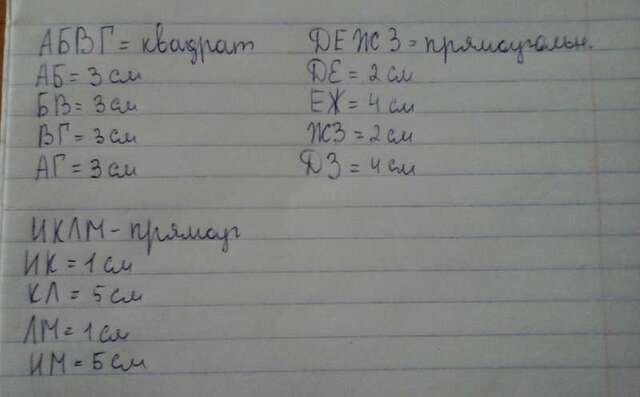 АБВГ = квадрат
АБ = 3 см
БВ = 3 см
ВГ = 3 см
АГ = 3 см
ДЕЖЗ = прямоугольн.
ДЕ = 2 см
ЕЖ = 4 см
ЖЗ = 2 см
ДЗ = 4 см
ИКЛМ - прямоуг
ИК = 1 см
КЛ = 5 см
ЛМ = 1 см
ИМ = 5 см